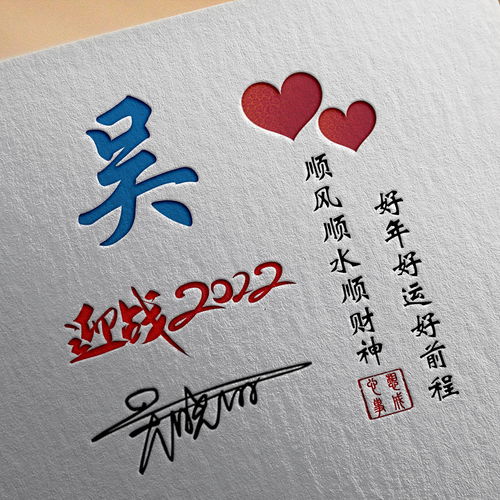 吴
迎战2022
好年好运好前程
顺风顺水顺财神
心想事成